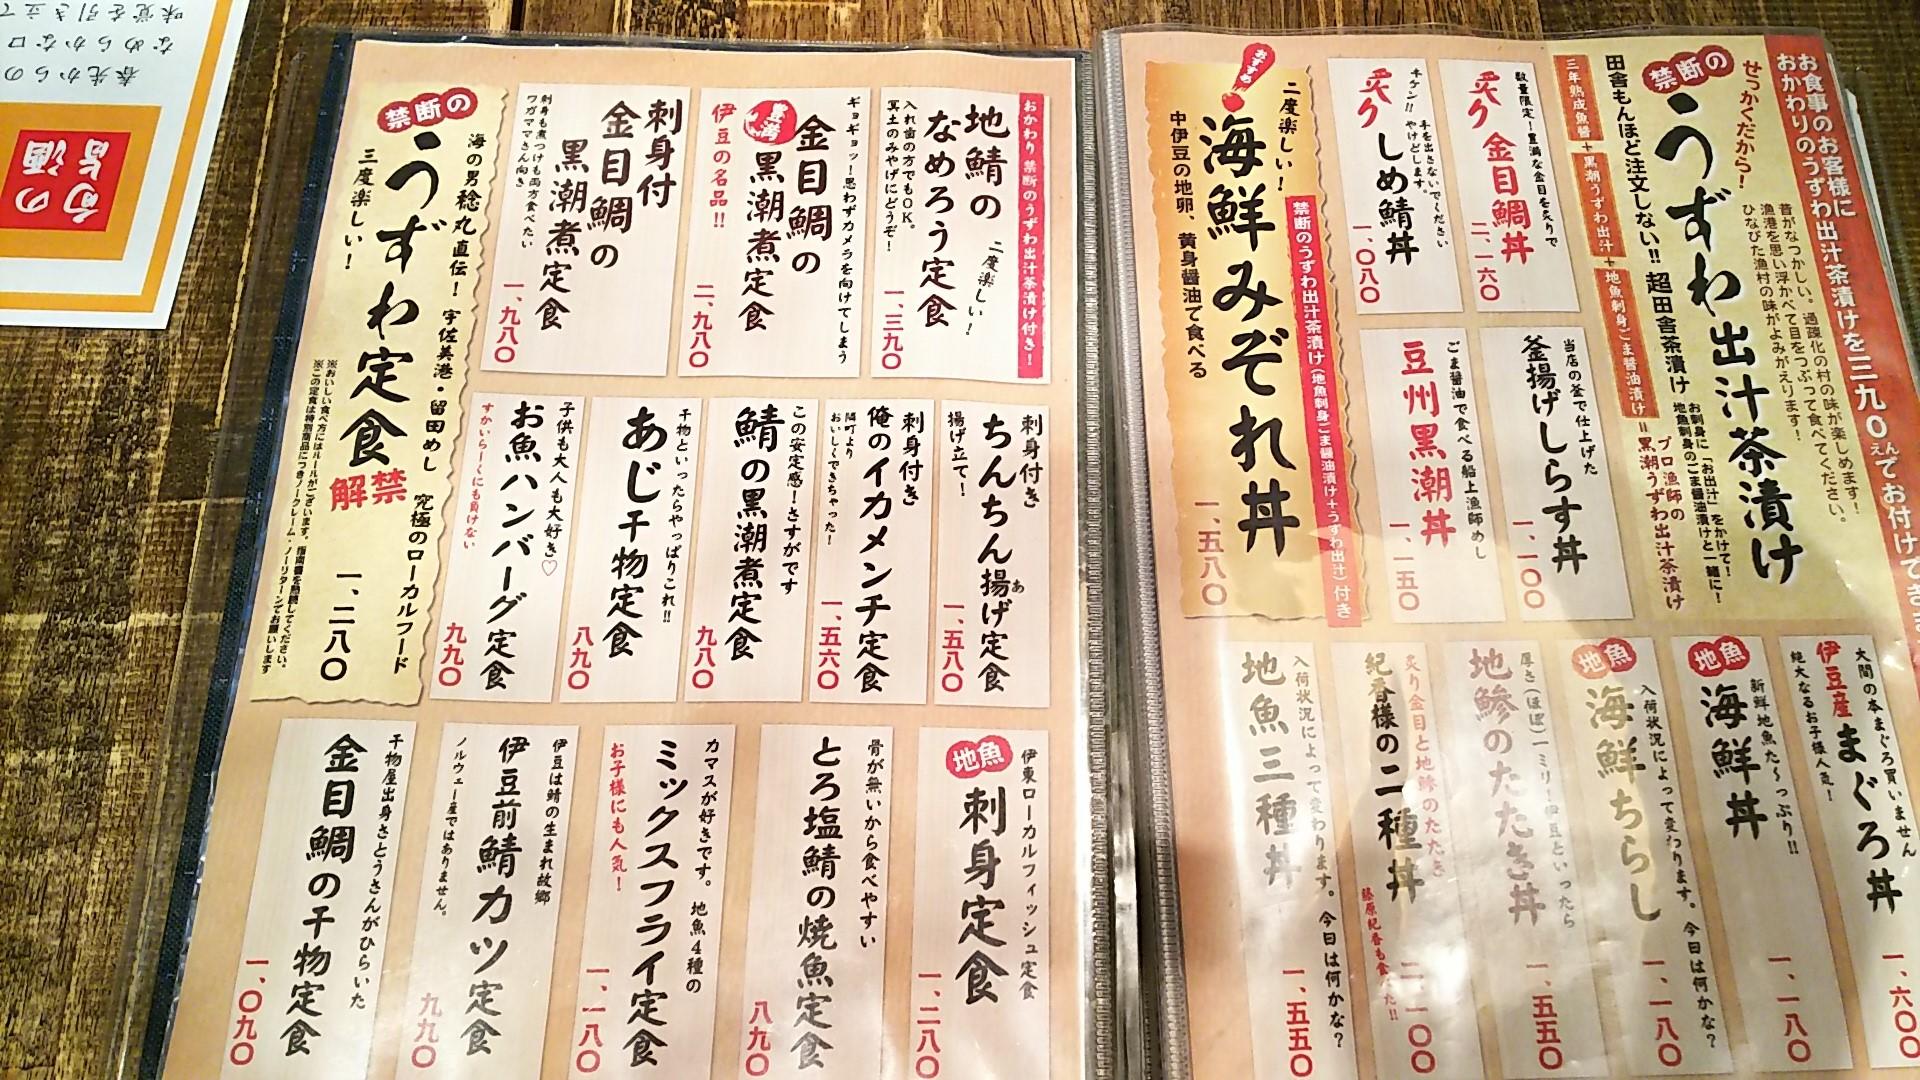 お食事のお客様に
おかわりのうずわ出汁茶漬けを三九〇えんでお付けでき
せっかくだから!
禁断の
うずわ出汁茶漬け
昔がなつかしい。過疎化の村の味が楽しめます!
漁港を思い浮かべて目をつぶって食べてください。
ひなびた漁村の味がよみがえります!
田舎もんほど注文しない!!超田舎茶漬け
お刺身に「お出汁」をかけて!
地魚刺身のごま醤油漬けと一緒に!
三年熟成魚醤+黒潮うずわ出汁+地魚刺身ごま醤油漬け=
プロ漁師の
黒潮うずわ出汁茶漬け
数量限定!豊満な金目を炙りで
炙り金目鯛丼
二、一六〇
キケン!!手を出さないでください
やけどします。
炙りしめ鯖丼
一、〇八〇
当店の釜で仕上げた
釜揚げしらす丼
一、一〇〇
ごま醤油で食べる船上漁師めし
豆州黒潮丼
一、一五〇
おすすめ
禁断のうずわ出汁茶漬け(地魚刺身ごま醤油漬け+うずわ出汁)付き
二度楽しい!
海鮮みぞれ丼
中伊豆の地卵、黄身醤油で食べる
一、五八〇
大間の本まぐろ買いません
伊豆産まぐろ丼
絶大なるお子様人気!
一、六〇〇
地魚
海鮮丼
新鮮地魚た〜っぷり!!
一、一八〇
地魚
海鮮ちらし
入荷状況によって変わります。今日は何かな?
一、一八〇
厚さ(ほぼ)一ミリ!伊豆といったら
地鯵のたたき丼
一、五五〇
炙り金目と地鯵のたたき
紀香様の二種丼
藤原紀香も食べた!!
二、一〇〇
入荷状況によって変わります。今日は何かな?
地魚三種丼
一、五五〇
おかわり 禁断のうずわ出汁茶漬け付き!
二度楽しい!
地鯖の
なめろう定食
入れ歯の方でもOK。
冥土のみやげにどうぞ!
一、三九〇
ギョギョッ!思わずカメラを向けてしまう
豊満
金目鯛の
黒潮煮定食
伊豆の名品!!
二、九八〇
刺身付
金目鯛の
黒潮煮定食
刺身も煮つけも両方食べたい
ワガママさん向き
一、九八〇
海の男稔丸直伝!宇佐美港・留田めし 究極のローカルフード
禁断の
うずわ定食
解禁
三度楽しい!
一、二八〇
※おいしい食べ方にはルールがございます。指南書を熟読してください。
※この定食は特別商品につきノークレーム・ノーリターンでお願いします
刺身付き
ちんちん揚げ定食
あ
揚げ立て!
一、五八〇
刺身付き
俺のイカメンチ定食
隣町より
おいしくできちゃった!
一、五六〇
この安定感!さすがです
鯖の黒潮煮定食
九八〇
干物といったらやっぱりこれ!!
あじ干物定食
八九〇
子供も大人も大好き♡
お魚ハンバーグ定食
すかいらーくにも負けない
九九〇
伊東ローカルフィッシュ定食
地魚
刺身定食
一、二八〇
骨が無いから食べやすい
とろ塩鯖の焼魚定食
八九〇
カマスが好きです。地魚4種の
ミックスフライ定食
お子様にも人気!
一、一八〇
伊豆は鯖の生まれ故郷
伊豆前鯖カツ定食
ノルウェー産ではありません。
九九〇
干物屋出身さとうさんがひらいた
金目鯛の干物定食
一、〇九〇
旬の
旨酒
春先からの
なめらかな口
味覚を引き立て